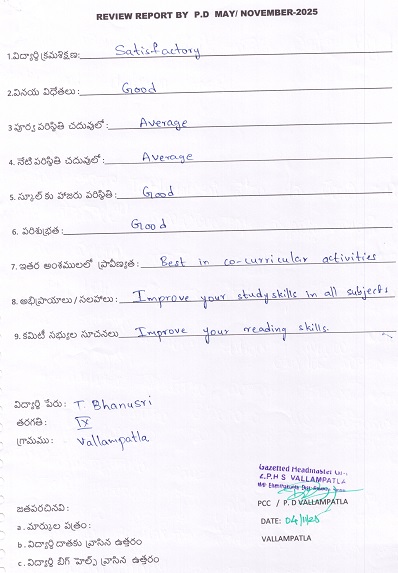 REVIEW REPORT BY P.D MAY/ NOVEMBER-2025
1.విద్యార్థి క్రమశిక్షణ: Satisfactory
2.వినయ విధేతలు: Good
3 పూర్వ పరిస్థితి చదువులో: Average
4. నేటి పరిస్థితి చదువులో: Average
5. స్కూల్ కు హాజరు పరిస్థితి: Good
6. పరిశుభ్రత: Good
7. ఇతర అంశములలో ప్రావీణ్యత: Best in co-curricular activities
8. అభిప్రాయాలు/ సలహాలు: Improve your study skills in all subjects
9. కమిటీ సభ్యుల సూచనలు Improve your reading skills.
విద్యార్థి పేరు: T. Bhanusri
తరగతి: IX
గ్రామము: Vallampatla
Gazetted Headmaster
Z.P.H S VALLAMPATLA
PCC / P. D VALLAMPATLA
జతపరచినవి:
DATE: 04/11/25
a. మార్కుల పత్రం:
VALLAMPATLA
b. విద్యార్థి దాతకు వ్రాసిన ఉత్తరం
c. విద్యార్థి బిగ్ హెల్ప్ వ్రాసిన ఉత్తరం